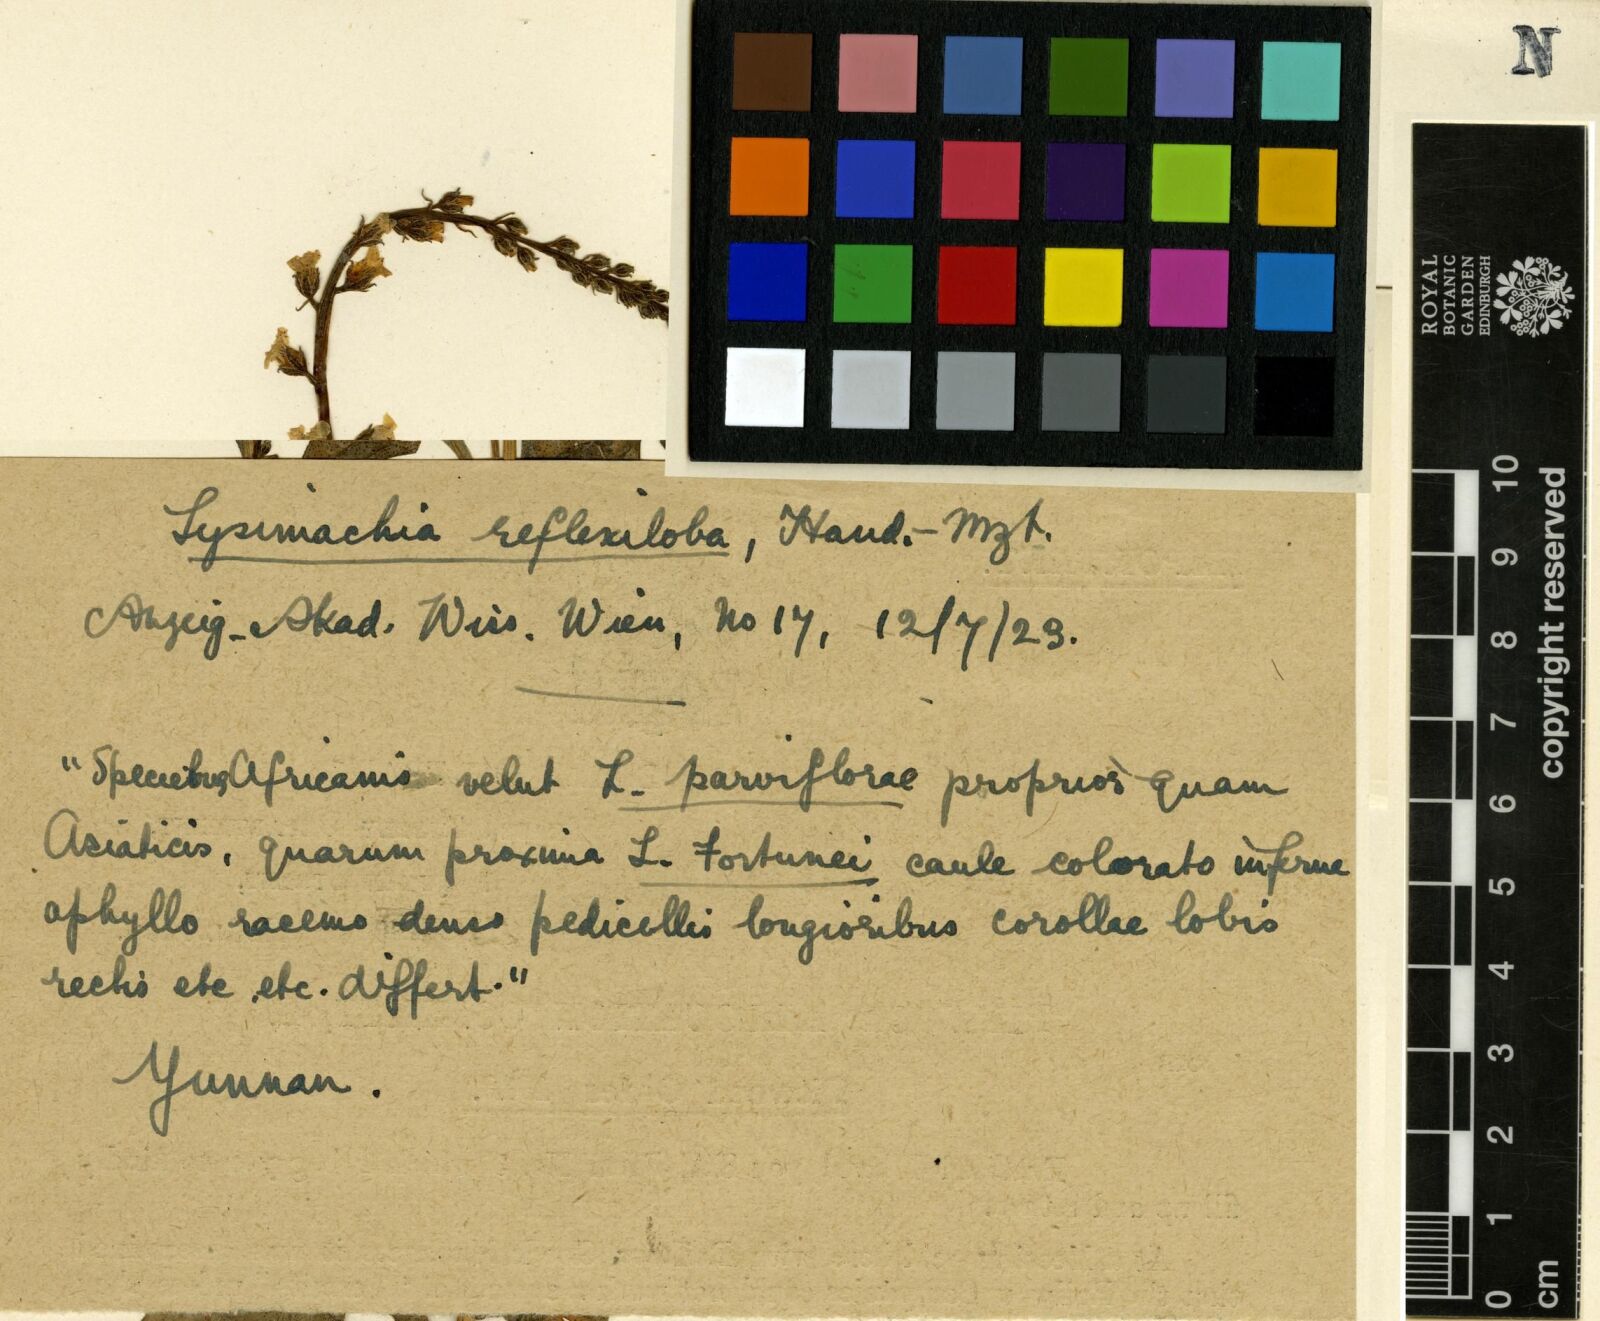 N
ROYAL
BOTANIC
GARDEN
EDINBURGH
Lysimachia reflexiloba, Hand.-Mzt.
Anzeig-Akad. Wiss. Wien, No 17, 12/7/23.
"Speciebus Africanis velut L. parviflorae proprior quam
Asiaticis, quarum proxima L. Fortunei caule colorato inferne
aphyllo racemo denso pedicellis longioribus corollae lobis
rectis etc etc. differt."
Yunnan.
10
9
8
7
6
5
4
3
2
1
0
cm
copyright reserved